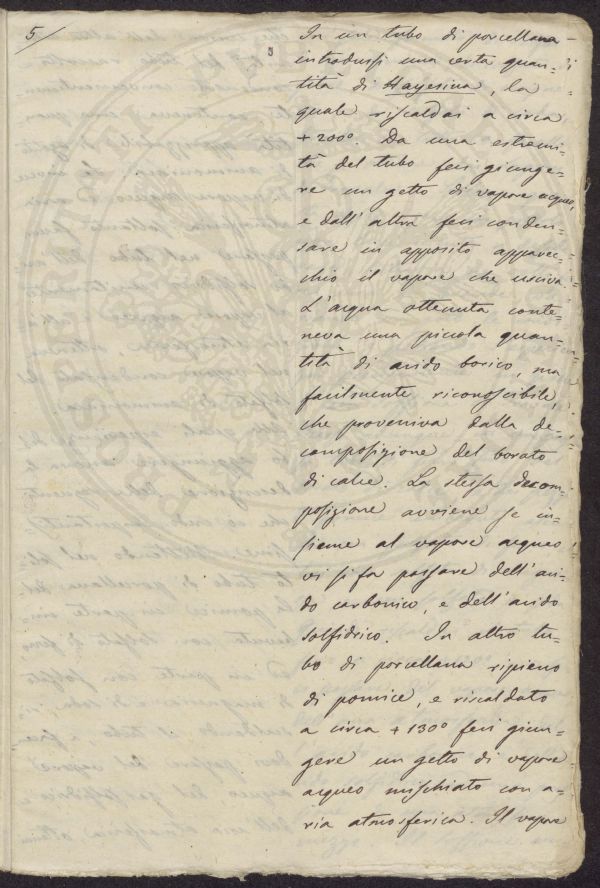 5/
In un tubo di porcellana
introdussi una certa quan=
tità di Hayesina, la
quale riscaldai a circa
+200°. Da una estremi=
tà del tubo feci giunge=
re un getto di vapore acqueo,
e dall'altra feci conden=
sare in apposito apparec=
chio il vapore che usciva
L'acqua ottenuta conte=
neva una piccola quan=
tità di acido borico, ma
facilmente riconoscibile,
che proveniva dalla de=
composizione del borato
di calce. La stessa decom=
posizione avviene se in=
sieme al vapore acqueo
vi si fa passare dell'aci=
do carbonico, e dell'acido
solfidrico. In altro tu=
bo di porcellana ripieno
di pomice, e riscaldato
a circa +130° feci giun=
gere un getto di vapore
acqueo mischiato con a=
ria atmosferica. Il vapore